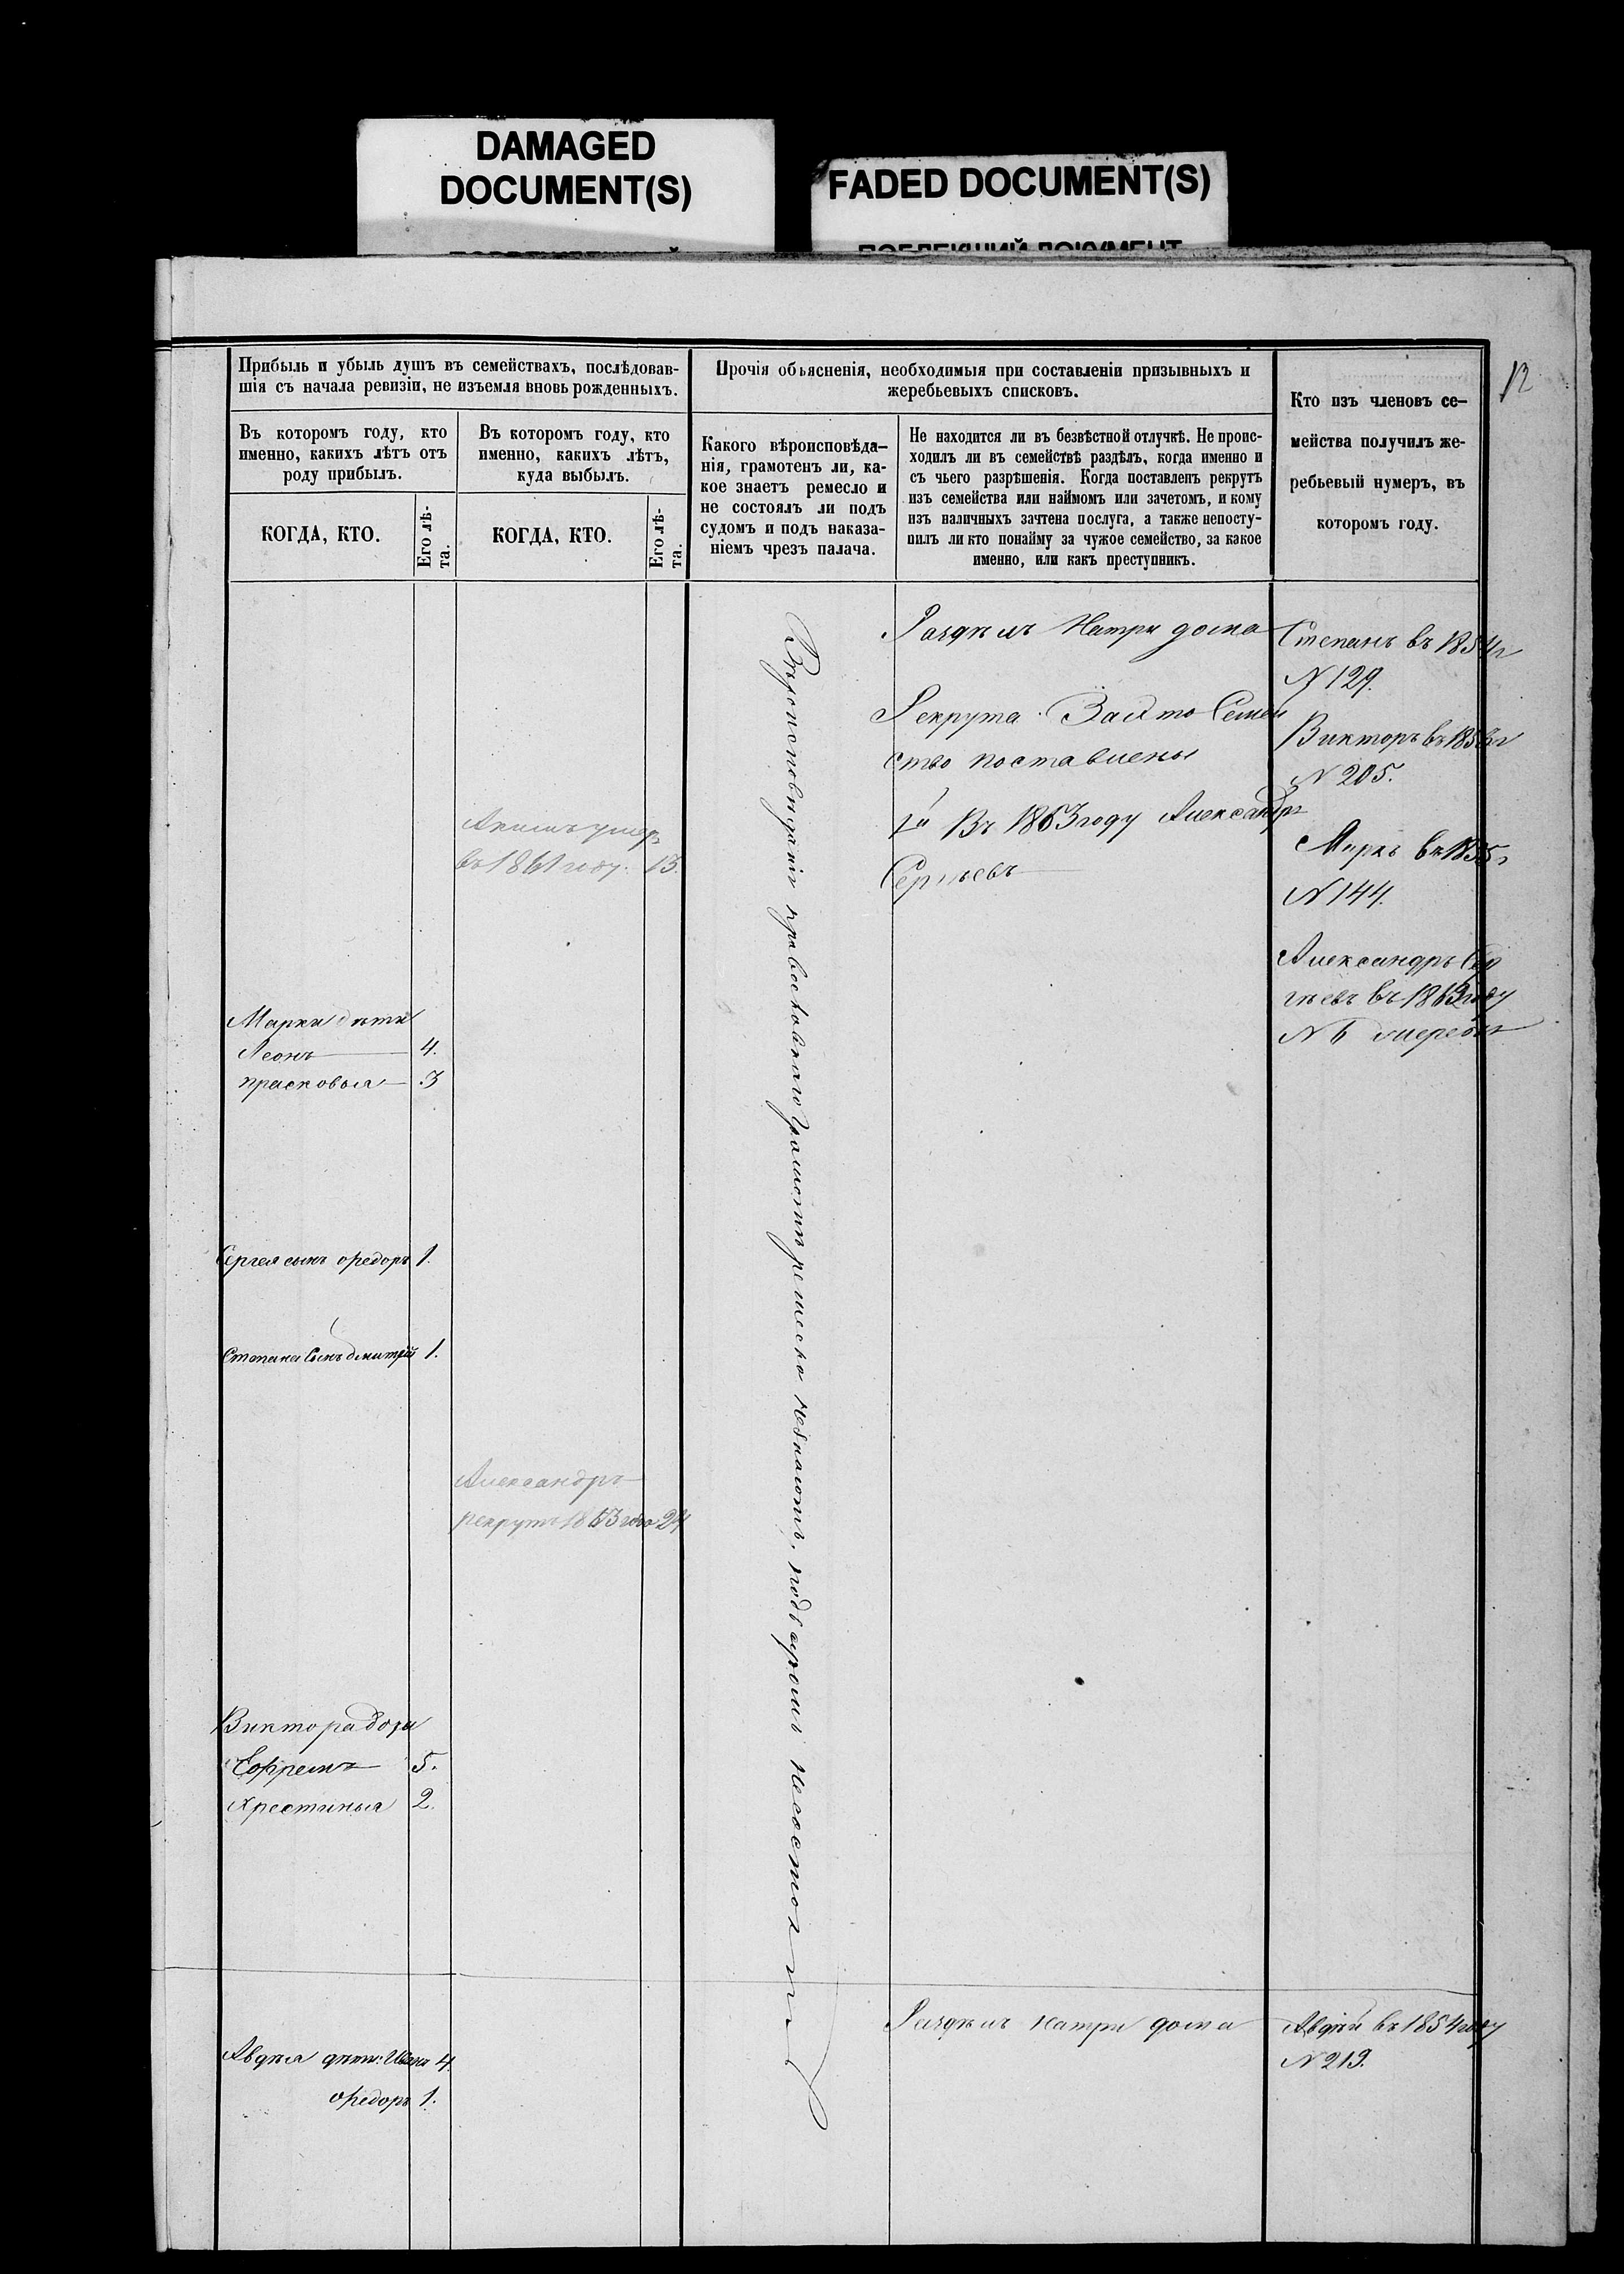 DAMAGED
DOCUMENT(S)
FADED DOCUMENT(S)
ПОБЛЕКШИЙ ДОКУМЕНТ
12
Прибыль и убыль душъ въ семействахъ, послѣдовав-
шія съ начала ревизіи, не изъемля вновь рожденныхъ.
Въ которомъ году, кто
именно, какихъ лѣтъ отъ
роду прибылъ.
КОГДА, КТО.
Его лѣ-
та.
Въ которомъ году, кто
именно, какихъ лѣтъ,
куда выбылъ.
КОГДА, КТО.
Его лѣ-
та.
Прочія объясненія, необходимыя при составленіи призывныхъ и
жеребьевыхъ списковъ.
Какого вѣроисповѣда-
нія, грамотенъ ли, ка-
кое знаетъ ремесло и
не состоялъ ли подъ
судомъ и подъ наказа-
ніемъ чрезъ палача.
Не находится ли въ безвѣстной отлучкѣ. Не проис-
ходилъ ли въ семействѣ раздѣлъ, когда именно и
съ чьего разрѣшенія. Когда поставленъ рекрутъ
изъ семейства или наймомъ или зачетомъ, и кому
изъ наличныхъ зачтена послуга, а также непосту-
пилъ ли кто понайму за чужое семейство, за какое
именно, или какъ преступникъ.
Кто изъ членовъ се-
мейства получилъ же-
ребьевый нумеръ, въ
которомъ году.
Марка дѣти
Леонъ 4.
прасковья 3
Сергея сынъ ѳедоръ 1.
Степана Сынъ дмитрій 1.
Виктора
Ефремъ 5.
Хрестинья 2.
Авдѣя дѣти: Иванъ 4.
ѳедоръ 1.
Акимъ умеръ
въ 1861 году. 13.
Александръ
рекрутъ 1863 года 24
Вѣроисповѣданія православнаго грамотѣ ремесла незнаютъ, подъ судомъ несостояли
Раздѣлъ Натри дома
Рекрута За это Семей
ство поставлены
1й Въ 1863 году Александръ
Сергѣевъ
Раздѣлъ натри дома
Степанъ въ 1854 г
N 129.
Викторъ въ
N 205.
Маркъ въ 1855 г
N 144.
Александръ Сер
гѣевъ въ 1863 году
N 6
Авдѣй въ 1854 году
N 219.